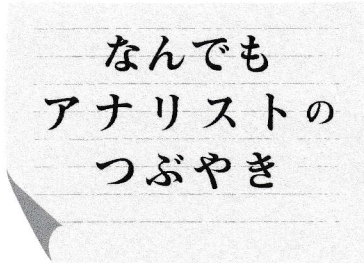 なんでも
アナリストの
つぶやき